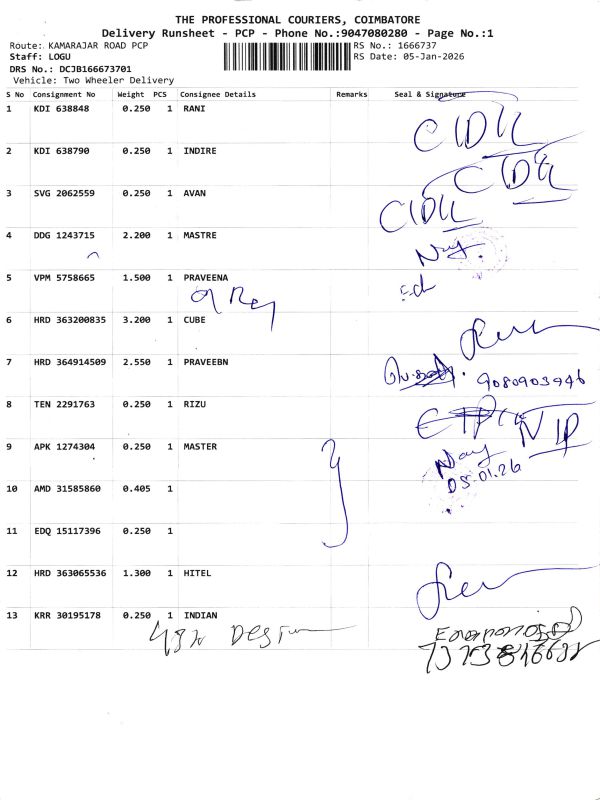 THE PROFESSIONAL COURIERS, COIMBATORE
Delivery Runsheet - PCP - Phone No.:9047080280 - Page No.:1
Route: KAMARAJAR ROAD PCP RS No.: 1666737
Staff: LOGU RS Date: 05-Jan-2026
DRS No.: DCJB166673701
Vehicle: Two Wheeler Delivery
S No Consignment No Weight PCS Consignee Details Remarks Seal & Signature
1 KDI 638848 0.250 1 RANI
2 KDI 638790 0.250 1 INDIRE
3 SVG 2062559 0.250 1 AVAN
4 DDG 1243715 2.200 1 MASTRE
5 VPM 5758665 1.500 1 PRAVEENA
6 HRD 363200835 3.200 1 CUBE
7 HRD 364914509 2.550 1 PRAVEEBN
9080903946
8 TEN 2291763 0.250 1 RIZU
9 APK 1274304 0.250 1 MASTER
05.01.26
10 AMD 31585860 0.405 1
11 EDQ 15117396 0.250 1
12 HRD 363065536 1.300 1 HITEL
13 KRR 30195178 0.250 1 INDIAN